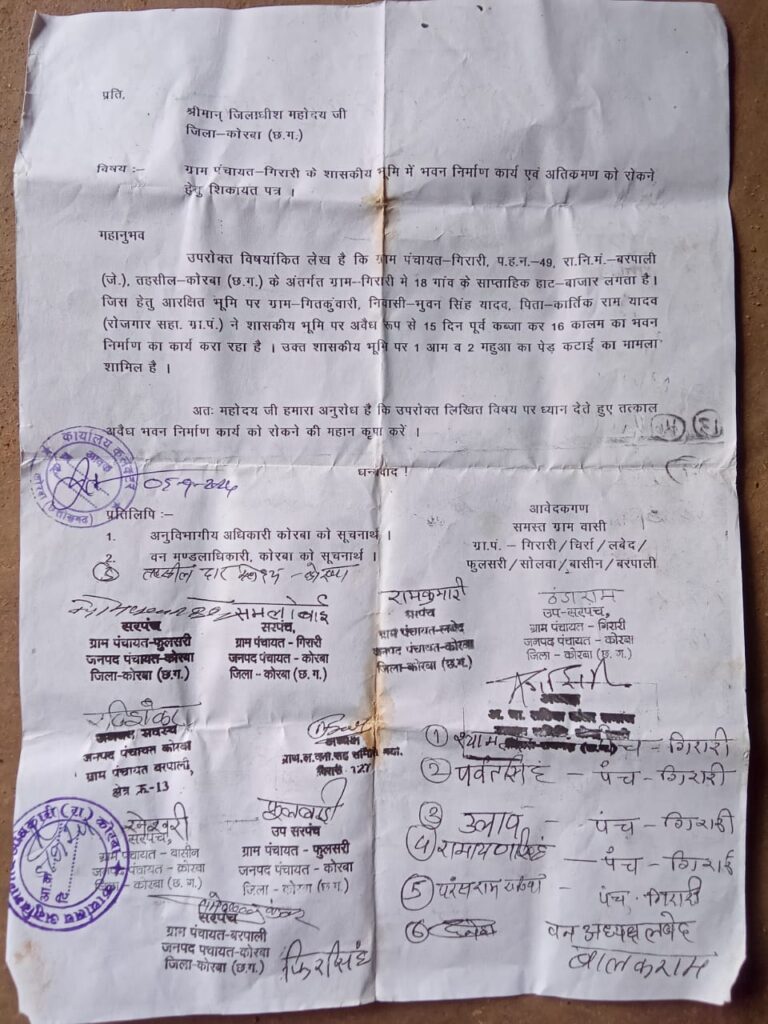 प्रति,
श्रीमान् जिलाधीश महोदय जी
जिला–कोरबा (छ.ग.)
विषय :–
ग्राम पंचायत–गिरारी के शासकीय भूमि में भवन निर्माण कार्य एवं अतिकमण को रोकने
हेतु शिकायत पत्र ।
महानुभव
उपरोक्त विषयांकित लेख है कि ग्राम पंचायत–गिरारी, प.ह.न.–49, रा.नि.मं.–बरपाली
(जे.), तहसील–कोरबा (छ.ग.) के अंतर्गत ग्राम–गिरारी मे 18 गांव के साप्ताहिक हाट–बाजार लगता है।
जिस हेतु आरक्षित भूमि पर ग्राम–गितकुंवारी, निवासी–भुवन सिंह यादव, पिता–कार्तिक राम यादव
(रोजगार सहा. ग्रा.पं.) ने शासकीय भूमि पर अवैध रूप से 15 दिन पूर्व कब्जा कर 16 कालम का भवन
निर्माण का कार्य करा रहा है । उक्त शासकीय भूमि पर 1 आम व 2 महुआ का पेड़ कटाई का मामला
शामिल है ।
अतः महोदय जी हमारा अनुरोध है कि उपरोक्त लिखित विषय पर ध्यान देते हुए तत्काल
अवैध भवन निर्माण कार्य को रोकने की महान कृपा करें ।
धन्यवाद !
कार्यालय कलेक्टर
प्रतिलिपि :–
1. अनुविभागीय अधिकारी कोरबा को सूचनार्थ ।
2. वन मण्डलाधिकारी, कोरबा को सूचनार्थ ।
आवेदकगण
समस्त ग्राम वासी
ग्रा.पं. – गिरारी/चिर्रा/लबेद/
फुलसरी/सोलवा/बासीन/बरपाली
सरपंच
ग्राम पंचायत-फुलसरी
जनपद पंचायत-कोरबा
जिला-कोरबा (छ.ग.)
सरपंच,
ग्राम पंचायत - गिरारी
जनपद पंचायत - कोरबा
जिला - कोरबा (छ. ग.)
रामकुमारी
सरपंच
ग्राम पंचायत-लबेद
जनपद पंचायत-कोरबा
जिला-कोरबा (छ.ग.)
उप-सरपंच,
ग्राम पंचायत - गिरारी
जनपद पंचायत - कोरबा
जिला - कोरबा (छ. ग.)
जनपद सदस्य
जनपद पंचायत कोरबा
ग्राम पंचायत बरपाली,
क्षेत्र क्र.-13
अध्यक्ष
सरपंच,
ग्राम पंचायत - बासीन
जनपद पंचायत - कोरबा
जिला - कोरबा (छ. ग.)
फूलबाई
उप सरपंच
ग्राम पंचायत - फुलसरी
जनपद पंचायत - कोरबा
जिला - कोरबा (छ. ग.)
सरपंच
ग्राम पंचायत-बरपाली
जनपद पंचायत-कोरबा
जिला-कोरबा (छ.ग.)
फिरसिंह
① श्याम पंच - गिरारी
② पर्वतसिंह - पंच - गिरारी
③ - पंच - गिरारी
④ रामायणसिंह - पंच - गिरारी
⑤ पंच - गिरारी
⑥ वन अध्यक्ष लबेद
बालकराम